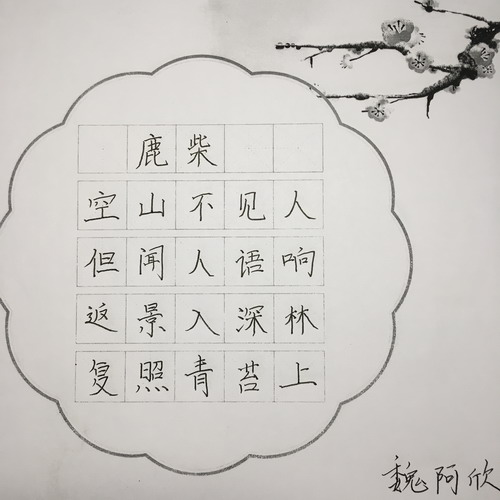 鹿柴
空山不见人
但闻人语响
返景入深林
复照青苔上
魏阿欣